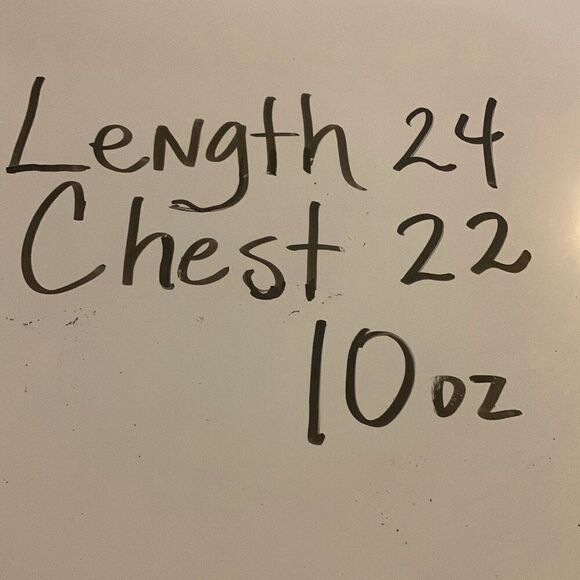 Length 24
Chest 22
10 oz